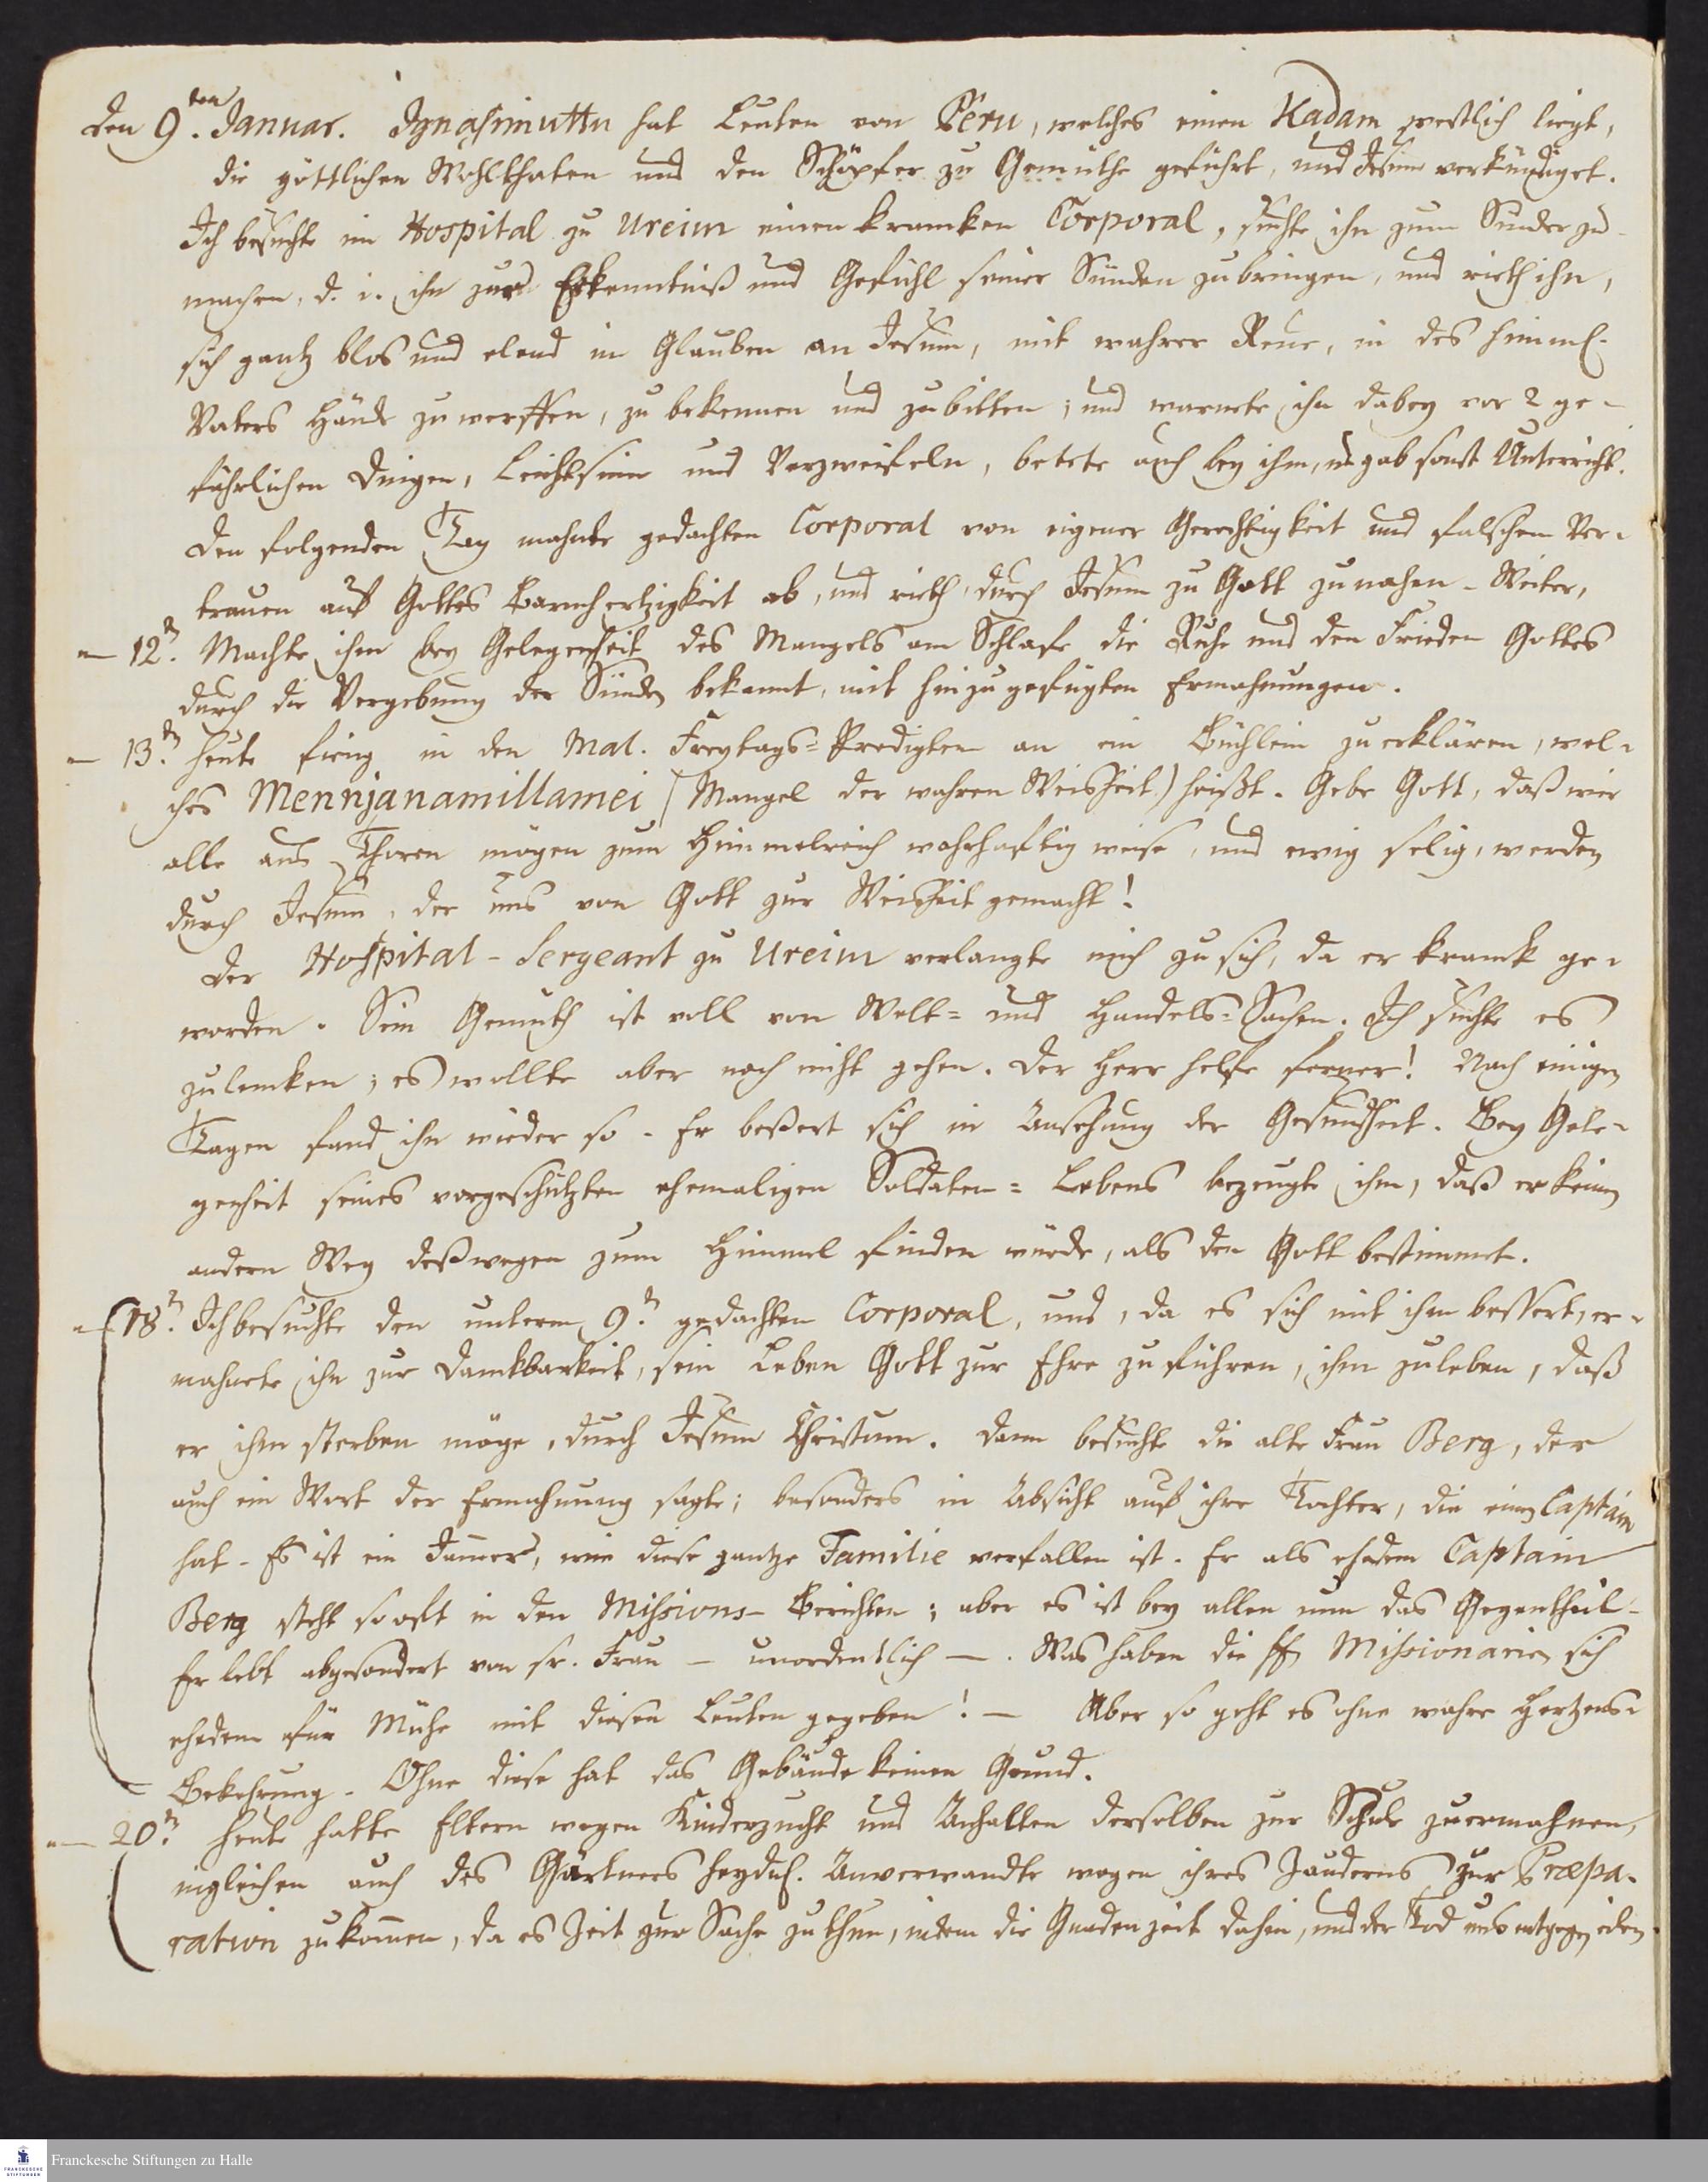 den 9.ten Januar. Ignasimuttu hat Leuten von Peru, welches einen Kadam westlich liegt,
die göttlichen Wohlthaten und den Schöpfer zu Gemüthe geführt, und Jesum verkündiget.
Ich besuchte im Hospital zu Ureiur einen krancken Corporal, suchte ihn zum Sünder zu
machen, d. i. ihn zur Erkenntniß und Gefühl seiner Sünden zu bringen, und rieth ihn,
sich gantz blos und elend in Glauben an Jesum, mit wahrer Reue, in des himml.
Vaters Hände zu werffen, zu bekennen und zu bitten; und warnete ihn dabey vor 2 ge-
fährlichen Dingen, Leichtsinn und Verzweifeln, betete auch bey ihm, u. gab sonst Unterricht.
Den folgenden Tag mahnte gedachten Corporal von eigener Gerechtigkeit und falschem Ver-
trauen auf Gottes Barmhertzigkeit ab, und rieth, durch Jesum zu Gott zu nahen. Weiter,
— 12.n Machte ihm bey Gelegenheit des Mangels am Schlafe die Ruhe und den Frieden Gottes
durch die Vergebung der Sünden bekannt, mit hinzugefügten Ermahnungen.
— 13.n Heute fieng in den Mal. Freytags-Predigten an ein Büchlein zu erklären, wel-
ches Mennjanamillamei (Mangel der wahren Weisheit) heißt. Gebe Gott, daß wir
alle aus Thoren mögen zum Himmelreich wahrhaftig weise, und ewig selig, werden
durch Jesum, der uns von Gott zur Weisheit gemacht!
Der Hospital-Sergeant zu Ureiur verlangte mich zu sich, da er kranck ge-
worden. Sein Gemüth ist voll von Welt- und Handels-Sachen. Ich suchte es
zu lencken; es wollte aber noch nicht gehen. Der Herr helfe ferner! Nach einigen
Tagen fand ihn wieder so. Er beßert sich in Ansehung der Gesundheit. Bey Gele-
genheit seines vorgeschützten ehemaligen Soldaten-Lebens bezeugte ihm, daß er keinen
andern Weg deßwegen zum Himmel finden würde, als den Gott bestimmet.
— 18.n Ich besuchte den unterm 9.n gedachten Corporal, und, da es sich mit ihm bessert, er-
mahnete ihn zur Danckbarkeit, sein Leben Gott zur Ehre zu führen, ihm zu leben, daß
er ihm sterben möge, durch Jesum Christum. Dann besuchte die alte Frau Berg, der
auch ein Wort der Ermahnung sagte; besonders in Absicht auf ihre Tochter, die einen Captain
hat. Es ist ein Jammer, wie diese gantze Familie verfallen ist. Er als ehedem Captain
Berg steht so oft in den Missions-Berichten; aber es ist bey allen nun das Gegentheil.
Er lebt abgesondert von sr. Frau — unordentlich —. Was haben die HH. Missionarien sich
ehedem für Mühe mit diesen Leuten gegeben! — Aber so geht es ohne wahre Hertzens-
Bekehrung. Ohne diese hat das Gebäude keinen Grund.
— 20.n Heute hatte Eltern wegen Kinderzucht und Anhalten derselben zur Schule zu ermahnen,
ingleichen auch des Gärtners heydn. Anverwandte wegen ihres Zauderns zur Præpa-
ration zu kommen, da es Zeit zur Sache zu thun, indem die Gnadenzeit dahin, und der Tod uns entgegen eilen.